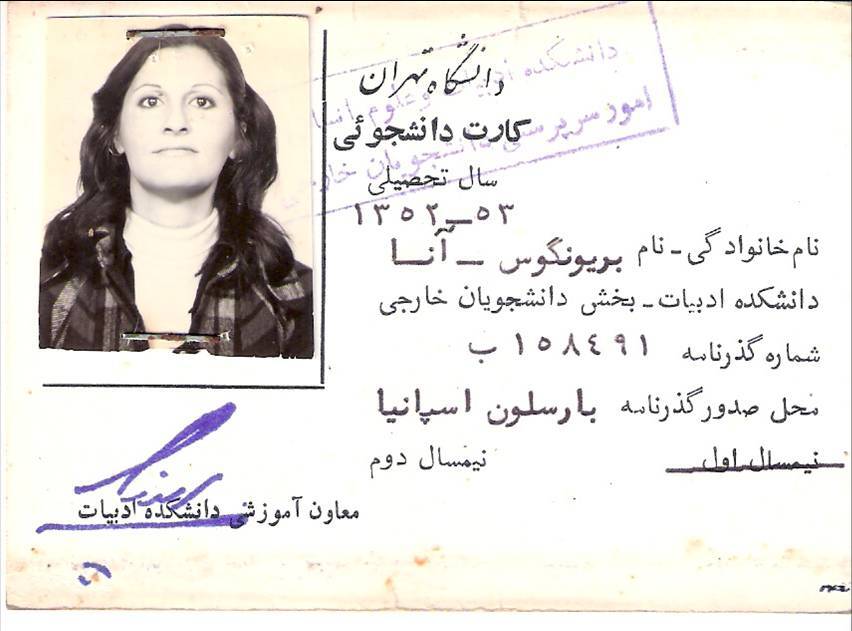 دانشگاه تهران
کارت دانشجوئی
سال تحصیلی
۱۳۵۲-۵۳
نام خانوادگی - نام بریونگوس - آنا
دانشکده ادبیات - بخش دانشجویان خارجی
شماره گذرنامه ۱۵۸٤۹۱ ب
محل صدور گذرنامه بارسلون اسپانیا
نیمسال اول نیمسال دوم
معاون آموزشی دانشکده ادبیات
دانشکده ادبیات و علوم انسا
امور سرپرستی دانشجویان خار